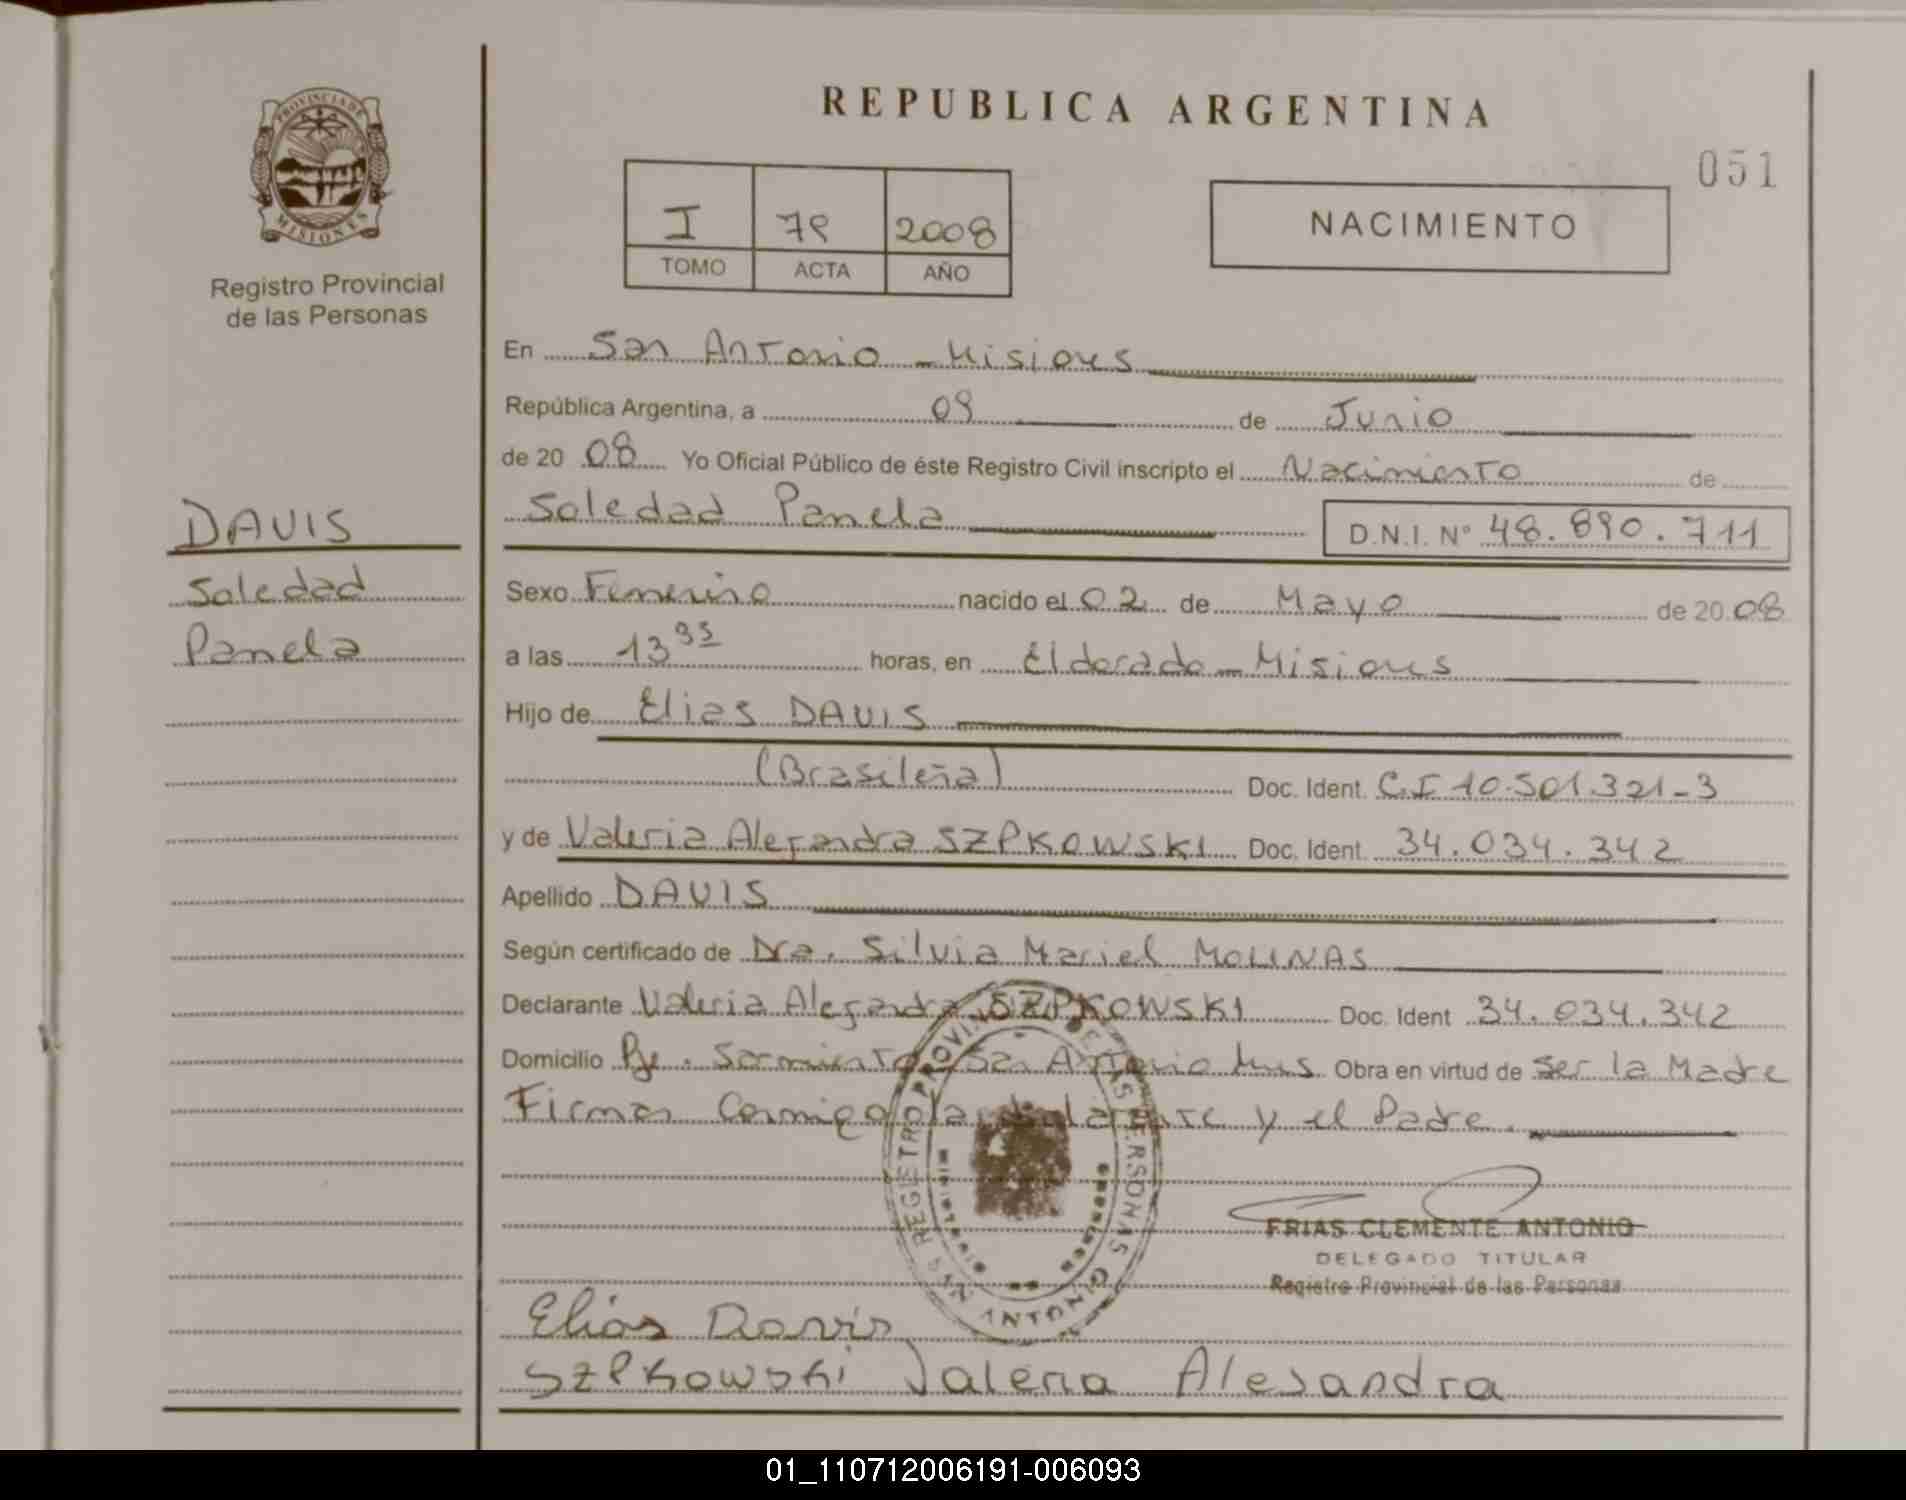 REPUBLICA ARGENTINA
051
PROVINCIA DE
MISIONES
Registro Provincial
de las Personas
I 79 2008
TOMO ACTA AÑO
NACIMIENTO
En San Antonio - Misiones
República Argentina, a 09 de Junio
de 20 08 Yo Oficial Público de éste Registro Civil inscripto el Nacimiento de
Soledad Pamela D.N.I. N° 48.890.711
DAVIS
Soledad
Pamela
Sexo Femenino nacido el 02 de Mayo de 20 08
a las 13 35 horas, en Eldorado - Misiones
Hijo de Elias DAVIS
(Brasileña) Doc. Ident. C.I 10.501.321-3
y de Valeria Alejandra SZPKOWSKI Doc. Ident. 34.034.342
Apellido DAVIS
Según certificado de Dra. Silvia Mariel MOLINAS
Declarante Valeria Alejandra SZPKOWSKI Doc. Ident 34.034.342
Domicilio Pje. Sarmiento San Antonio Mns Obra en virtud de Ser la Madre
Firman Conmigo la declarante y el Padre.
REGISTRO PROVINCIAL DE LAS PERSONAS
SAN ANTONIO
FRIAS CLEMENTE ANTONIO
DELEGADO TITULAR
Registro Provincial de las Personas
Elias Davis
SZPKowski Valeria Alejandra
01_110712006191-006093